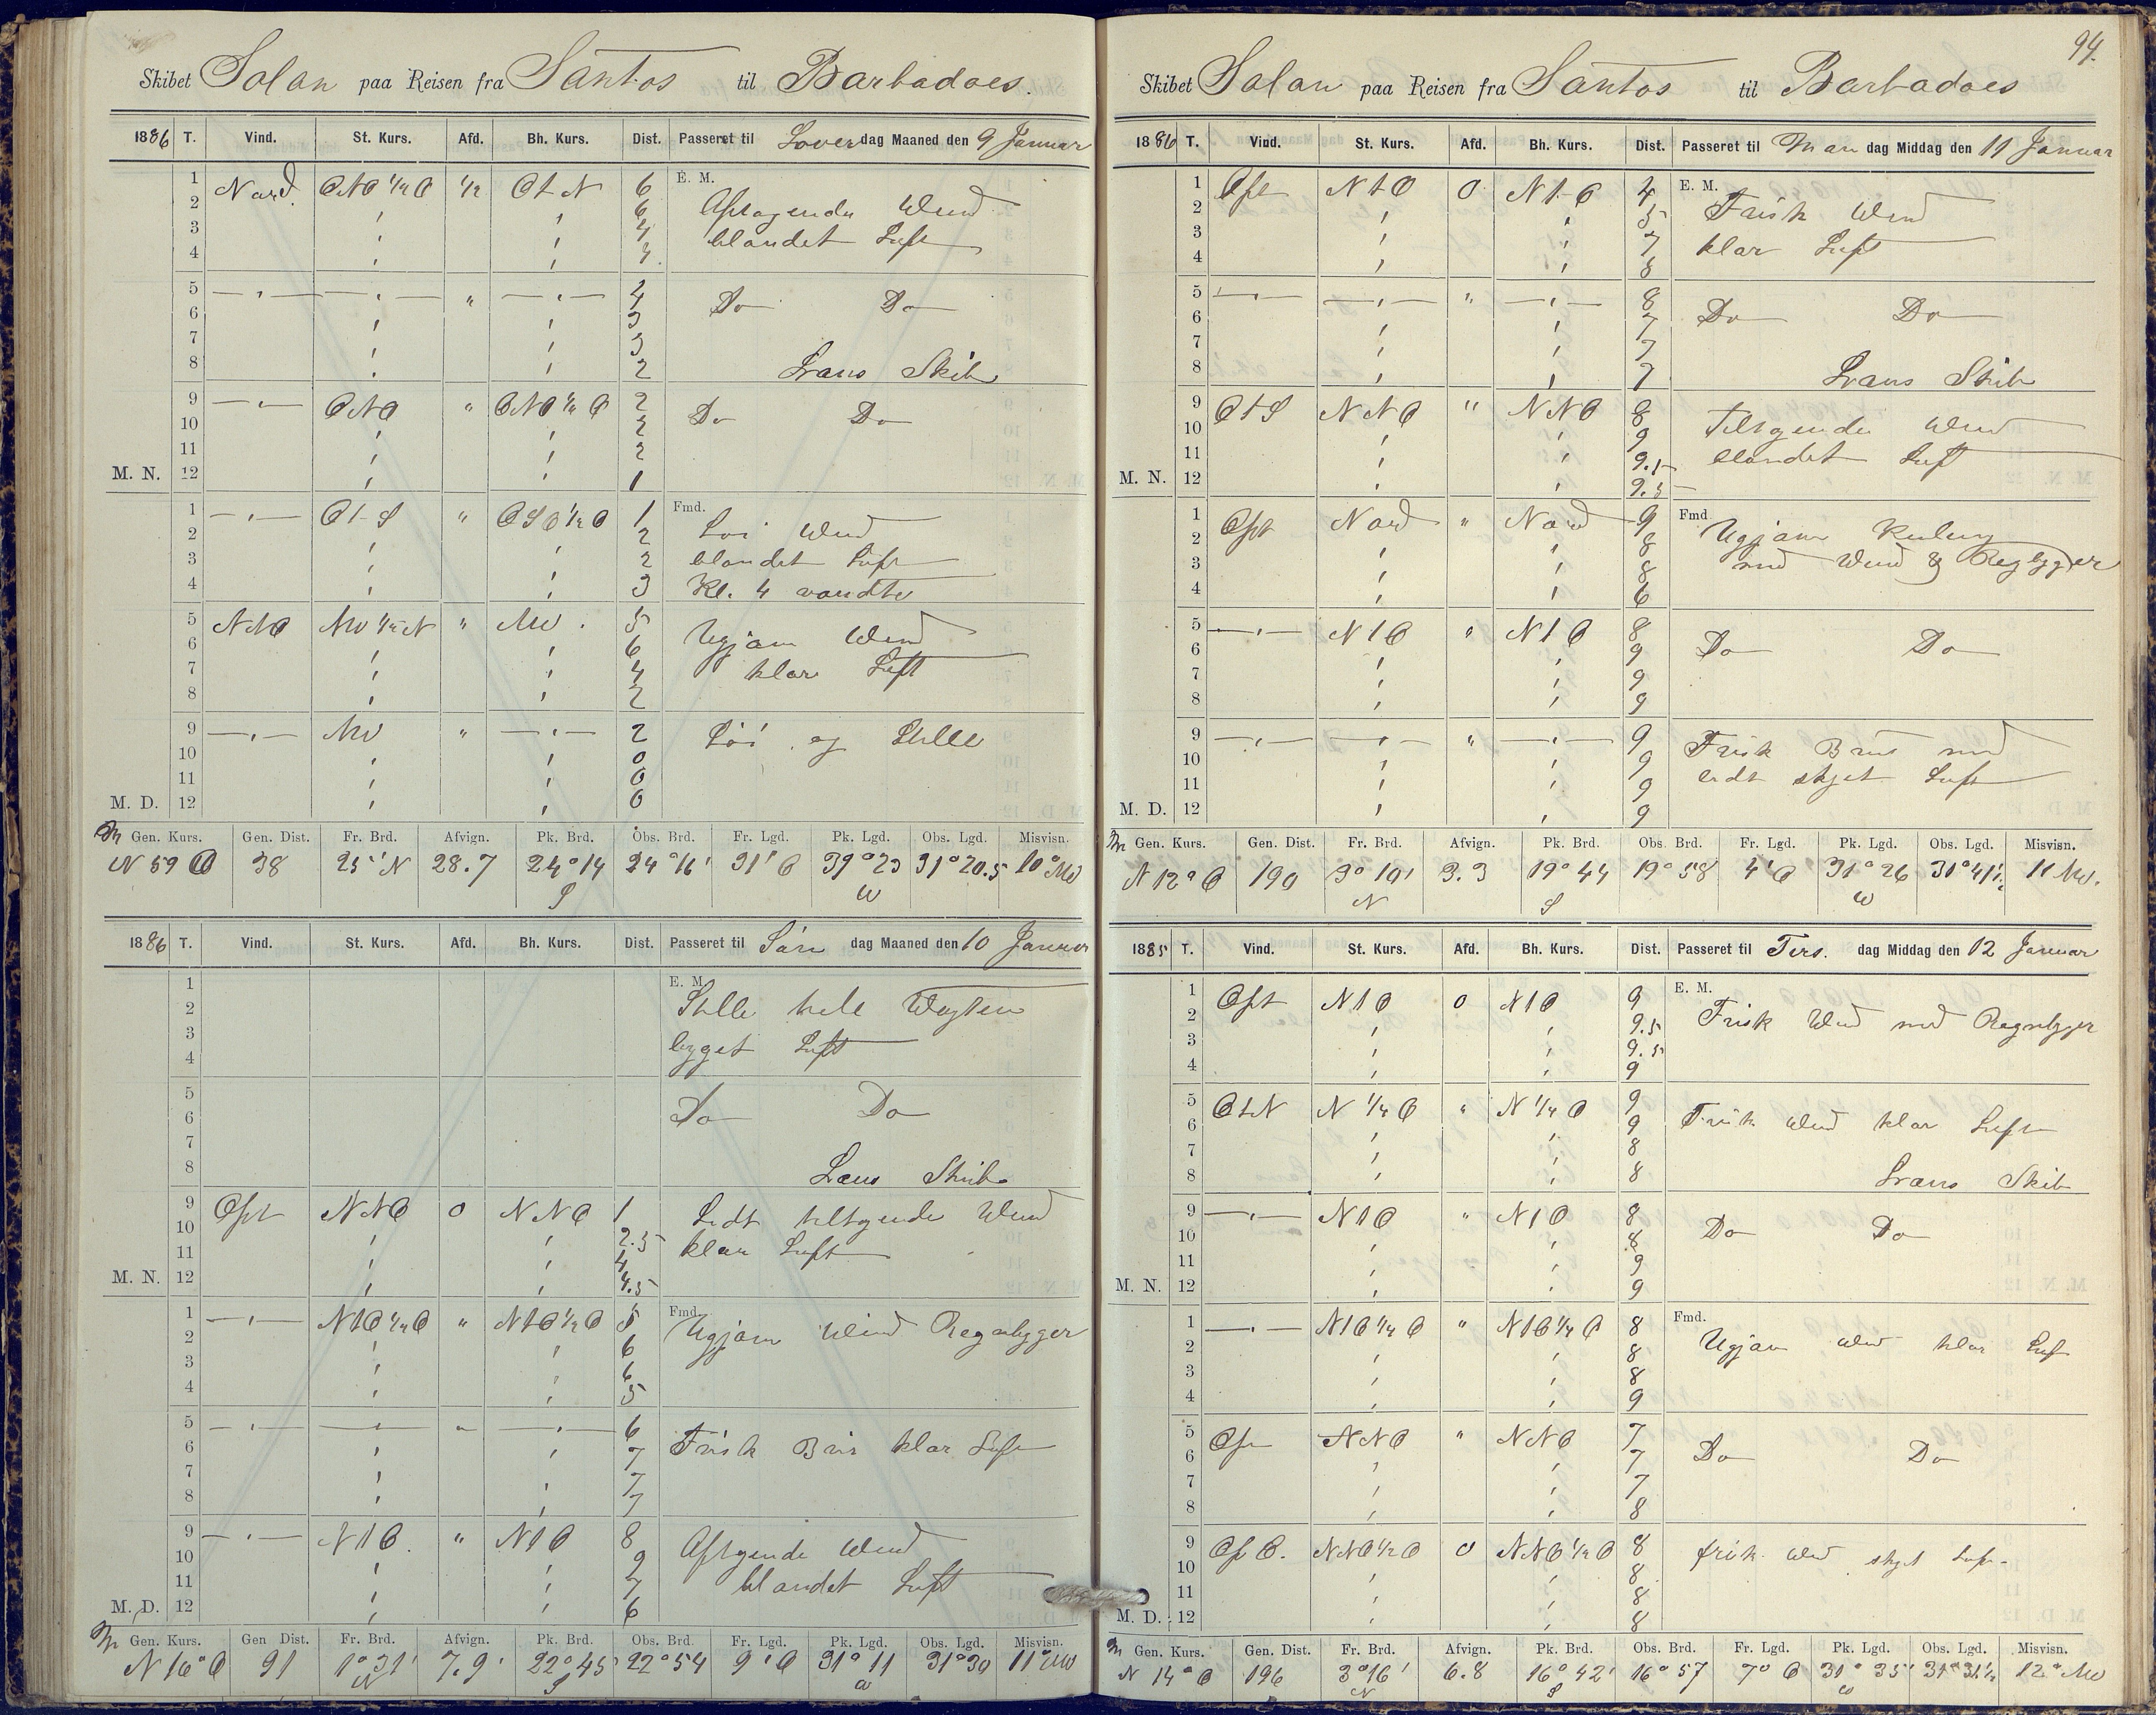 Skibet Solan paa Reisen fra Santos til Barbadoes.
1886 T. Vind. St. Kurs. Afd. Bh. Kurs. Dist. Passeret til Löver dag Maaned den 9 Januar
E. M.
1 Nord. ONO ½ O ½ O t N 6 Aftagende Wind
2 6
3 4 blandet Luft
4 4
5 4 Do Do
6 3
7 3
8 2 Lans Skib
9 ONO " ONO ½ O 2 Do Do
10 2
11 2
M. N. 12 1
Fmd.
1 O t S " OSO ½ O 1 Löi Wind
2 2
3 2 blandet Luft
4 3 Kl. 4 vendte
5 NNO NW ½ N " NW. 5 Ugjävn Wind
6 6
7 4 klar Luft
8 2
9 NW " 2 Löi og Stille
10 0
11 0
M. D. 12 0
Gen. Kurs. Gen. Dist. Fr. Brd. Afvign. Pk. Brd. Obs. Brd. Fr. Lgd. Pk. Lgd. Obs. Lgd. Misvisn.
N 59 O 38 25' N 28.7 24°14 S 24°16' 31' O 31°23 W 31°20.5 10° NW
1886 T. Vind. St. Kurs. Afd. Bh. Kurs. Dist. Passeret til Sön dag Maaned den 10 Januar
E. M.
1 Stille hele Wagten
2
3 byget Luft
4
5 Do Do
6
7
8 Lans Skib
9 Ost NNO 0 NNO 1 Lidt tiltgende Wind
10 2.5
11 4 klar Luft
M. N. 12 4.5
Fmd.
1 N t O ½ O " N t O ½ O 5 Ugjävn Wind Regnbyger
2 6
3 6
4 5
5 " 6 Frisk Bris klar Luft
6 7
7 7
8 7
9 N t O. " N t O 8 Aftgende Wind
10 9
11 7 blandet Luft
M. D. 12 6
Gen. Kurs. Gen Dist. Fr. Brd. Afvign. Pk. Brd. Obs. Brd. Fr. Lgd. Pk. Lgd. Obs. Lgd. Misvisn.
N 16° O 91 1°31' N 7.9 22°45' S 22°54 9' O 31°11 W 31°30 11° NW
94.
Skibet Solan paa Reisen fra Santos til Barbadoes
1886 T. Vind. St. Kurs. Afd. Bh. Kurs. Dist. Passeret til Man dag Middag den 11 Januar
E. M.
1 Ost N t O 0 N t O 4 Frisk Wind
2 5
3 7 klar Luft
4 8
5 " 8 Do Do
6 7
7 7
8 7 Lans Skib
9 O t S NNO " NNO 8 Teltgende Wind
10 9
11 9.5 blandet Luft
M. N. 12 9.5
Fmd
1 Ost Nord " Nord 9 Ugjävn Kuling
2 8
3 8 med Wind & Regbyger
4 6
5 N t O " N t O 8 Do Do
6 9
7 9
8 9
9 " 9 Frisk Bris med
10 9
11 9 lidt skyet Luft
M. D. 12 9
Gen. Kurs. Gen. Dist. Fr. Brd. Afvign. Pk. Brd. Obs. Brd. Fr. Lgd. Pk. Lgd. Obs. Lgd. Misvisn.
N 12° O 190 3°10' N 3.3 19°44 S 19°58 4' O 31°26 W 31°41½ 11 NW.
1885 T. Vind. St. Kurs. Afd. Bh. Kurs. Dist. Passeret til Tirs. dag Middag den 12 Januar
E. M.
1 Ost N t O 0 N t O 9 Frisk Wind med Regnbyger
2 9.5
3 9.5
4 9
5 O t N N ¼ O " N ¼ O 9 Frisk Wind klar Luft
6 9
7 8
8 8 Lans Skib
9 N t O " N t O 8 Do Do
10 8
11 9
M. N. 12 9
Fmd.
1 N t O ¼ O " N t O ¼ O 8 Ugjävn Wind klar Luft
2 8
3 8
4 9
5 Ost NNO " NNO 7 Do Do
6 7
7 7
8 8
9 NNO ½ O 0 NNO ½ O 8 frisk Wind skyet Luft
10 8
11 8
M. D. 12 8
Gen. Kurs. Gen. Dist. Fr. Brd. Afvign. Pk. Brd. Obs. Brd. Fr. Lgd. Pk. Lgd. Obs. Lgd. Misvisn.
N 14° O 196 3°16' N 6.8 16°42' S 16°57 7° O 31°35' W 31°31½ 12° NW